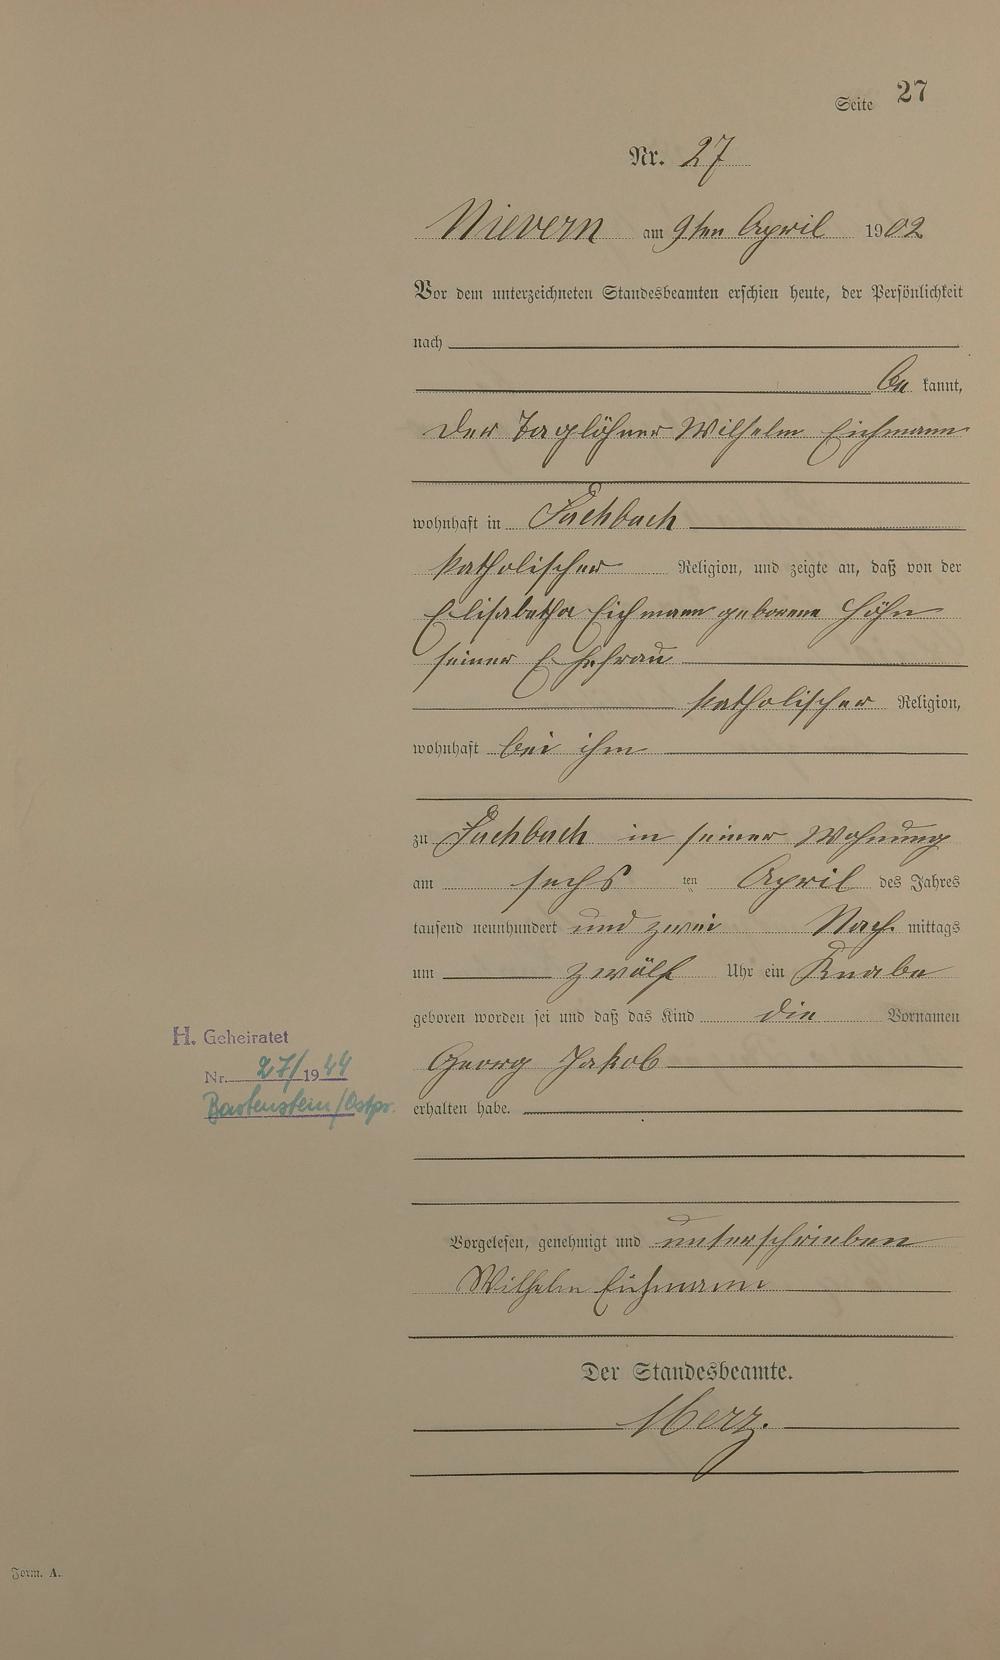 Seite 27
Nr. 27
Nievern am 9ten April 1902
Vor dem unterzeichneten Standesbeamten erschien heute, der Persönlichkeit
nach
be kannt,
der Taglöhner Wilhelm Eichmann
wohnhaft in Fachbach
katholischer Religion, und zeigte an, daß von der
Elisabetha Eichmann geborene Höhn
seiner Ehefrau
katholischer Religion,
wohnhaft bei ihm
zu Fachbach in seiner Wohnung
am sechs ten April des Jahres
tausend neunhundert und zwei Nach mittags
um zwölf Uhr ein Knabe
geboren worden sei und daß das Kind die Vornamen
H. Geheiratet
Georg Jakob
Nr. 27/1944
Bartenstein/Ostpr.
erhalten habe.
Vorgelesen, genehmigt und unterschrieben
Wilhelm Eichmann
Der Standesbeamte.
Merz.
Form. A.